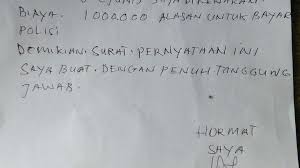 BIAYA. 1000.000 ALASAN UNTUK BAYAR
POLISI
DEMIKIAN. SURAT. PERNYATAAN INI
SAYA BUAT. DENGAN PENUH TANGGUNG
JAWAB.
HORMAT
SAYA